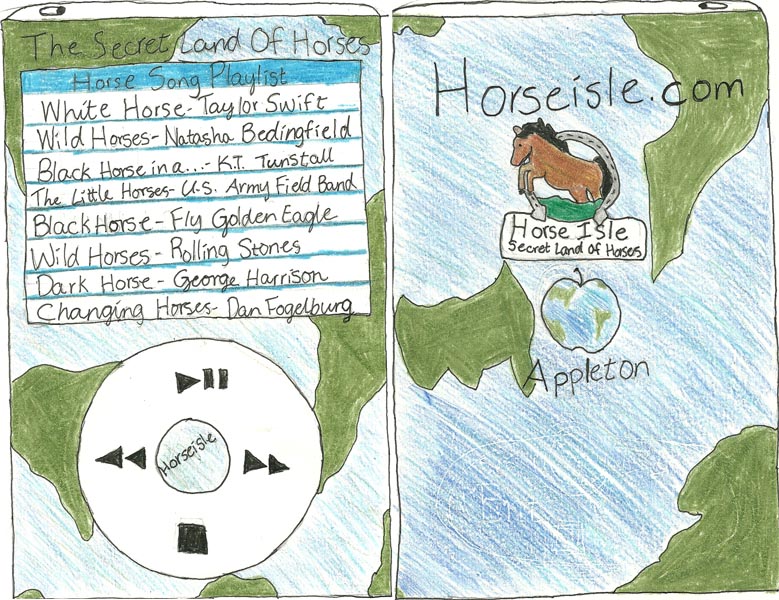 The Secret Land Of Horses
Horse Song Playlist
White Horse- Taylor Swift
Wild Horses- Natasha Bedingfield
Black Horse in a...- K.T. Tunstall
The Little Horses- U.S. Army Field Band
Black Horse - Fly Golden Eagle
Wild Horses - Rolling Stones
Dark Horse - George Harrison
Changing Horses- Dan Fogelburg
Horseisle
Horseisle.com
Horse Isle
Secret Land of Horses
Appleton